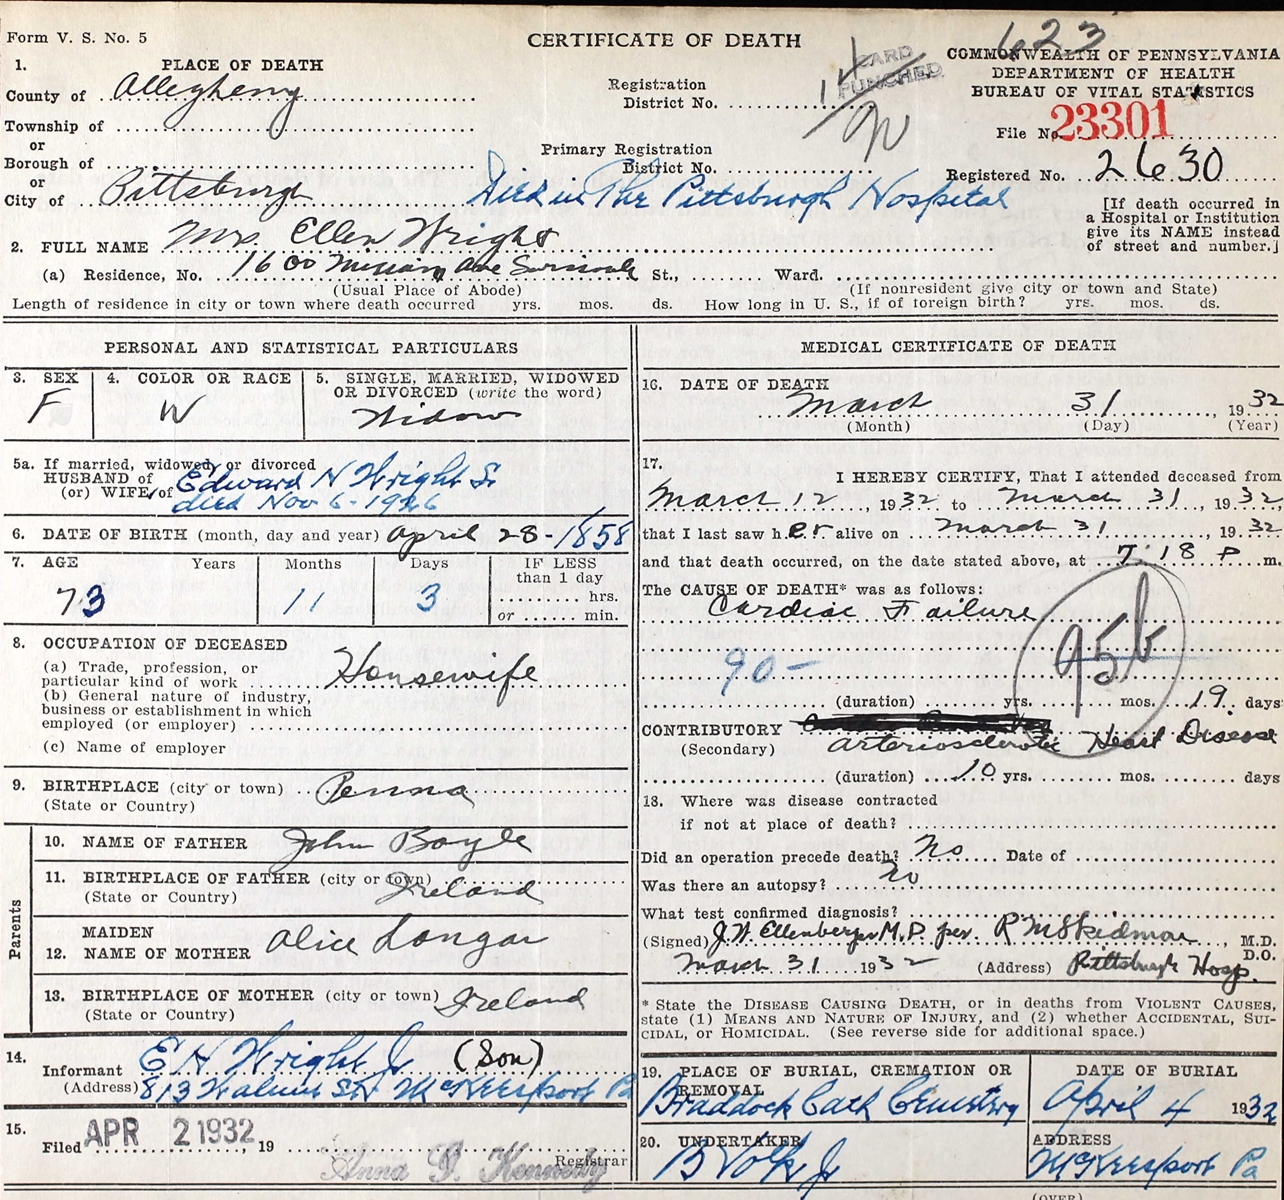 Form V. S. No. 5
CERTIFICATE OF DEATH
623
COMMONWEALTH OF PENNSYLVANIA
DEPARTMENT OF HEALTH
BUREAU OF VITAL STATISTICS
CARD PUNCHED
1. PLACE OF DEATH
County of Allegheny
Registration District No.
File No. 23301
Township of
or
Borough of
or
Primary Registration District No.
Registered No. 2630
City of Pittsburgh
Died in The Pittsburgh Hospital
[If death occurred in a Hospital or Institution give its NAME instead of street and number.]
2. FULL NAME Mrs. Ellen Wright
(a) Residence, No. 1600 Ave St., Ward.
(Usual Place of Abode) (If nonresident give city or town and State)
Length of residence in city or town where death occurred yrs. mos. ds. How long in U. S., if of foreign birth? yrs. mos. ds.
PERSONAL AND STATISTICAL PARTICULARS
3. SEX F
4. COLOR OR RACE W
5. SINGLE, MARRIED, WIDOWED OR DIVORCED (write the word) Widow
5a. If married, widowed, or divorced
HUSBAND of
(or) WIFE of Edward N Wright Sr
died Nov 6 - 1926
6. DATE OF BIRTH (month, day and year) April 28 - 1858
7. AGE Years Months Days IF LESS than 1 day
73 11 3 hrs. or min.
8. OCCUPATION OF DECEASED
(a) Trade, profession, or particular kind of work Housewife
(b) General nature of industry, business or establishment in which employed (or employer)
(c) Name of employer
9. BIRTHPLACE (city or town) Penna
(State or Country)
Parents
10. NAME OF FATHER John Boyle
11. BIRTHPLACE OF FATHER (city or town) Ireland
(State or Country)
12. MAIDEN NAME OF MOTHER Alice Longar
13. BIRTHPLACE OF MOTHER (city or town) Ireland
(State or Country)
14. Informant E N Wright Jr (Son)
(Address) 813 Walnut St McKeesport Pa
15. Filed APR 2 1932, 19
Anna G. Kennedy
Registrar
MEDICAL CERTIFICATE OF DEATH
16. DATE OF DEATH
March 31, 1932
(Month) (Day) (Year)
17. I HEREBY CERTIFY, That I attended deceased from
March 12, 1932 to March 31, 1932,
that I last saw her alive on March 31, 1932
and that death occurred, on the date stated above, at 7:18 P m.
The CAUSE OF DEATH* was as follows:
Cardiac Failure
90 -
95b
(duration) yrs. mos. 19 days
CONTRIBUTORY
(Secondary) Arteriosclerotic Heart Disease
(duration) 10 yrs. mos. days
18. Where was disease contracted
if not at place of death?
Did an operation precede death? No Date of
Was there an autopsy? No
What test confirmed diagnosis?
(Signed) J. W. Ellenberger M.D. per R McSkidmore, M.D. D.O.
March 31 1932 (Address) Pittsburgh Hosp.
* State the DISEASE CAUSING DEATH, or in deaths from VIOLENT CAUSES, state (1) MEANS AND NATURE OF INJURY, and (2) whether ACCIDENTAL, SUICIDAL, or HOMICIDAL. (See reverse side for additional space.)
19. PLACE OF BURIAL, CREMATION OR REMOVAL DATE OF BURIAL
Braddock Cath Cemetery April 4 1932
20. UNDERTAKER ADDRESS
B Volk Jr McKeesport Pa
(OVER)